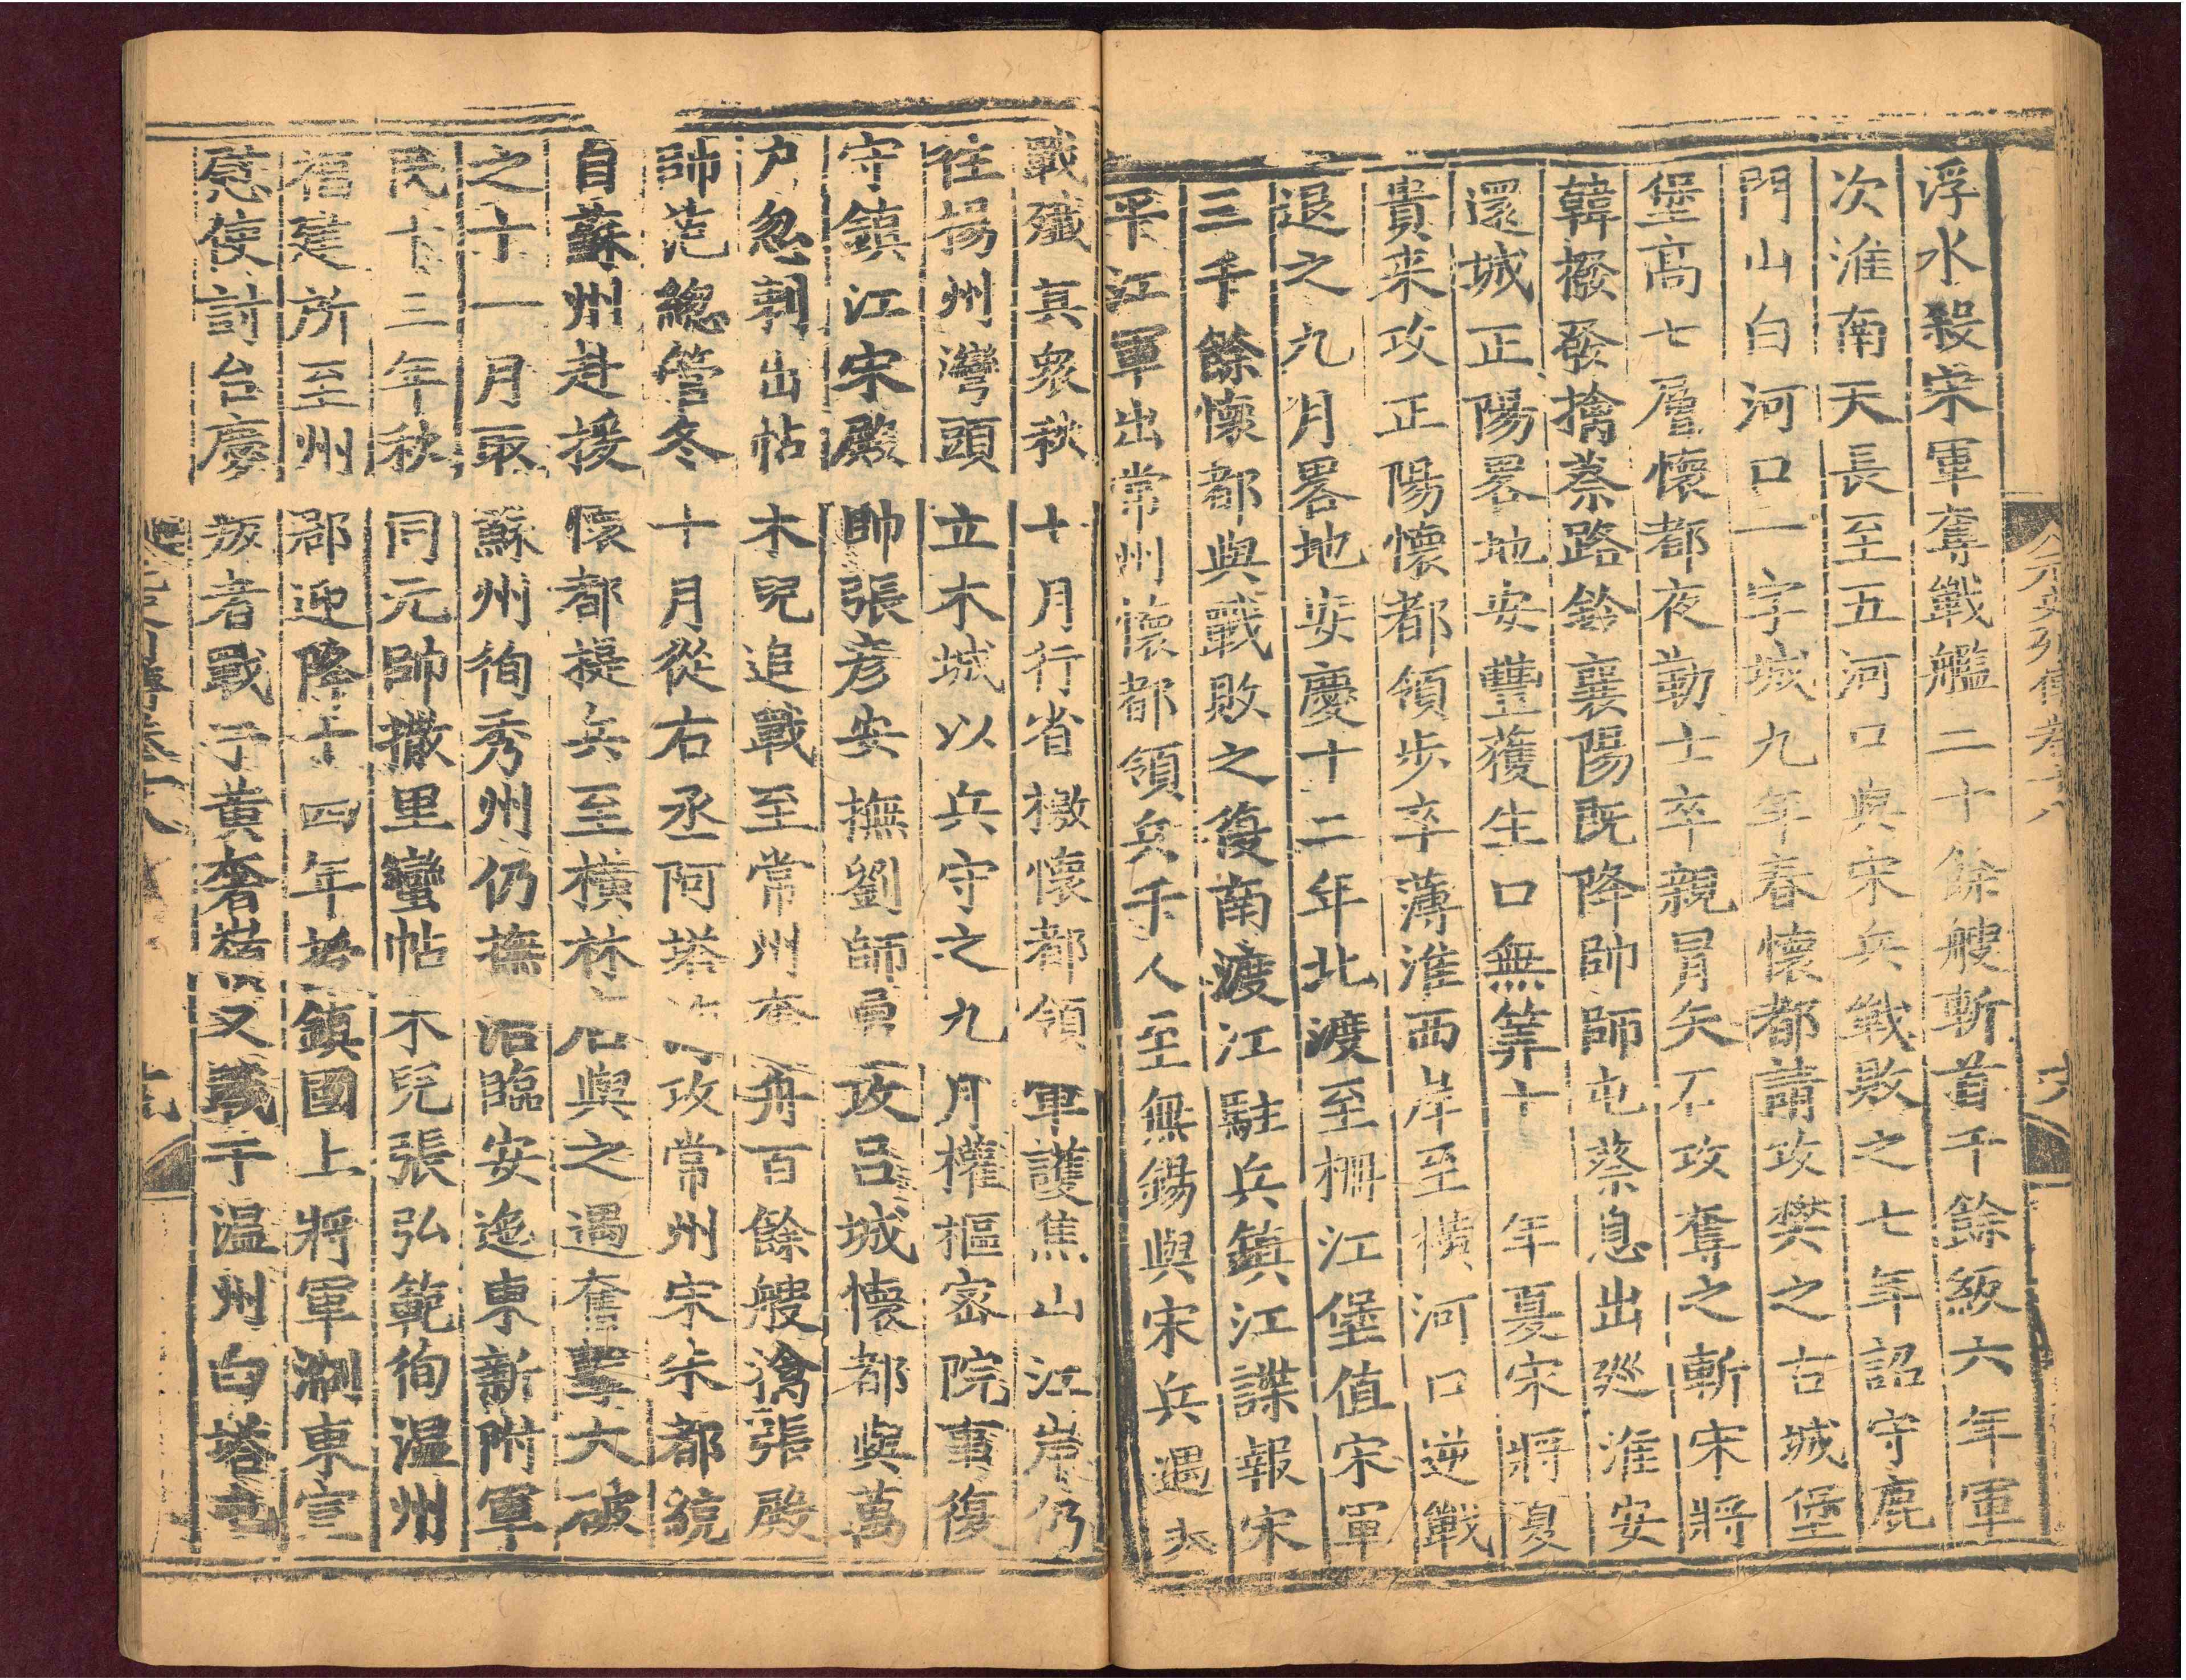 浮水殺宋軍奪戰艦二十餘艘斬首千餘級六年軍
次淮南天長至五河口與宋兵戰敗之七年詔守鹿
門山白河口一字城九年春懷都請攻樊之古城堡
堡高七層懷都夜勒士卒親冒矢石攻奪之斬宋將
韓撥發擒蔡路鈐襄陽既降帥師屯蔡息出廵淮安
還城正陽畧地安豐獲生口無筭十 年夏宋將夏
貴来攻正陽懷都領步卒薄淮西岸至横河口逆戰
退之九月畧地安慶十二年北渡至柵江堡值宋軍
三千餘懷都與戰敗之復南渡江駐兵鎮江諜報宋
平江軍出常州懷都領兵千人至無錫與宋兵遇大
戰殱其衆秋 十月行省檄懷都領 軍護焦山江岸仍
往揚州灣頭 立木城以兵守之九 月權樞宻院事復
守鎮江宋殿 帥張彦安撫劉師勇 攻吕城懷都與萬
户忽剌出帖 木兒追戰至常州奪 舟百餘艘擒張殿
帥范總管冬 十月從右丞阿塔 攻常州宋朱都綂
自蘇州赴援 懷都提兵至横林 與之遇奮擊大破
之十一月取 蘇州徇秀州仍撫 治臨安迤東新附軍
民十三年秋 同元帥撒里蠻帖 木兒張弘範徇温州
福建所至州 郡迎降十四年 鎮國上將軍淛東宣
慰使討台慶 叛者戰于黄奢嶺 又戰于温州白塔屯